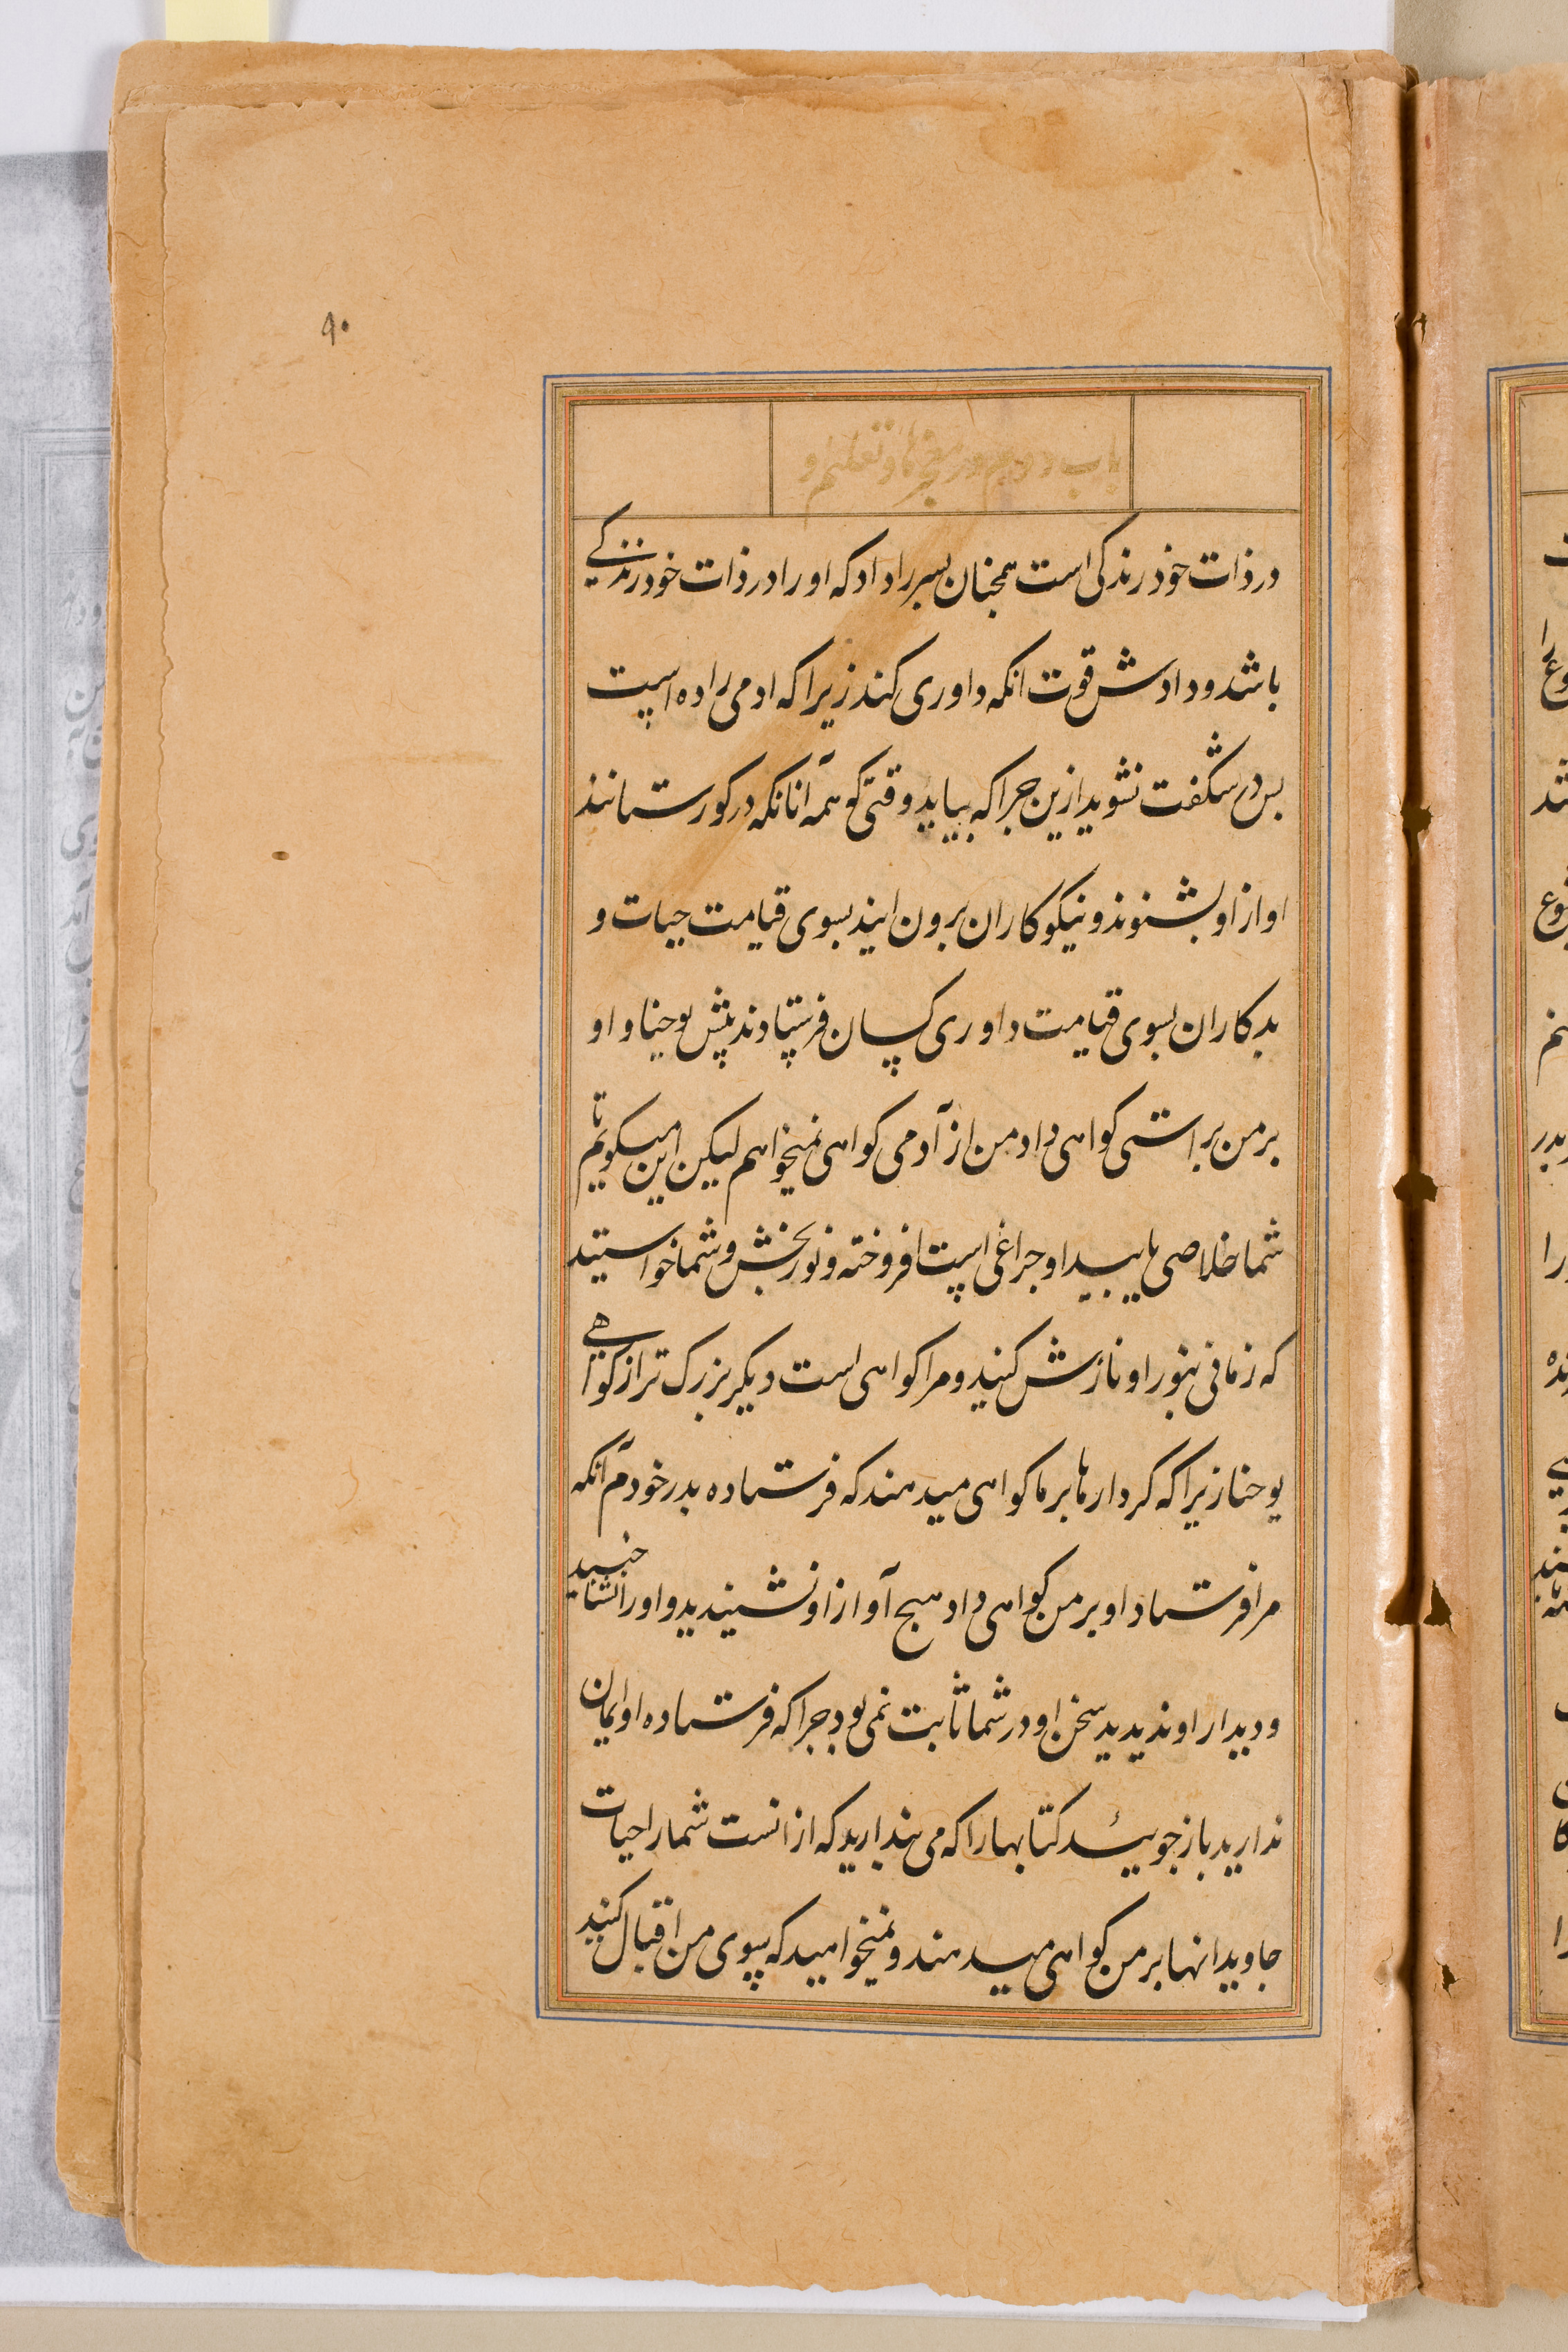 ۹۰
باب دوم در معجزها و تعلیم و
در ذات خود زندکی است همجنان بسر را داد که او را در ذات خود زندکی
باشد و دادش قوت انکه داوری کند زیرا که ادمی زاده است
بس در شکفت نشوید ازین جرا که بیاید وقتی که همه آنانکه در کورستانند
اواز او بشنوند و نیکوکاران برون ایند بسوی قیامت حیات و
بدکاران بسوی قیامت داوری کسان فرستادند پیش یوحنا و او
بر من براستی کواهی داد من از آدمی کواهی نمیخواهم لیکن این میکویم تا
شما خلاصی یابید او جراغی است افروخته و نوربخش و شما خواستید
که زمانی بنور او نازش کنید و مرا کواهی است دیکر بزرک تر از کواهی
یوحنا زیرا که کردارها بر ما کواهی میدهند که فرستاده بدر خودم آنکه
مرا فرستاد او بر من کواهی داد هیج آواز او نشنیدید و او را نشناختید
و دیدار او ندیدید سخن او در شما ثابت نمی بود جرا که فرستاده او ایمان
ندارید باز جوئید کتابها را که می بندارید که از انست شما را حیات
جاوید انها بر من کواهی میدهند و نمیخواهید که بسوی من اقبال کنید